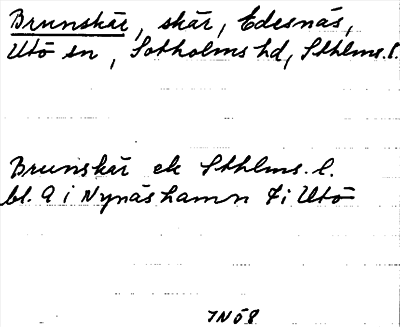 Brunskär, skär, Edesnäs,
Utö sn, Sotholms hd, Sthlms. l.
Brunskär ek Sthlms. l.
bl. 9 i Nynäshamn